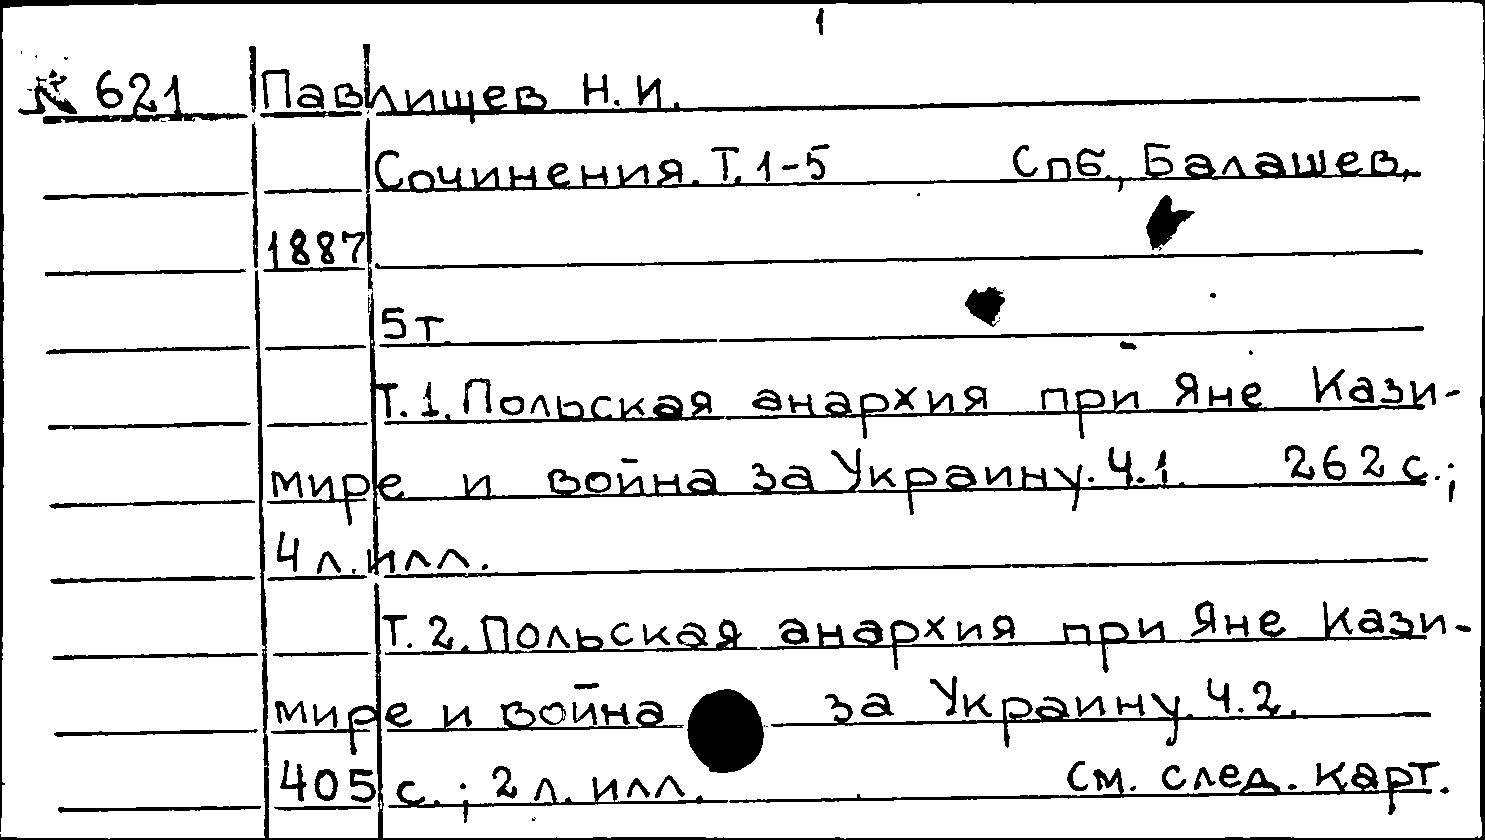 1
№ 621 Павлищев Н.И.
Сочинения. Т. 1-5 Спб., Балашев,
1887.
5 т.
Т. 1. Польская анархия при Яне Кази-
мире и война за Украину. Ч. 1. 262 с.;
4 л. илл.
Т. 2. Польская анархия при Яне Кази-
мире и война за Украину. Ч. 2.
405 с.; 2 л. илл. См. след. карт.